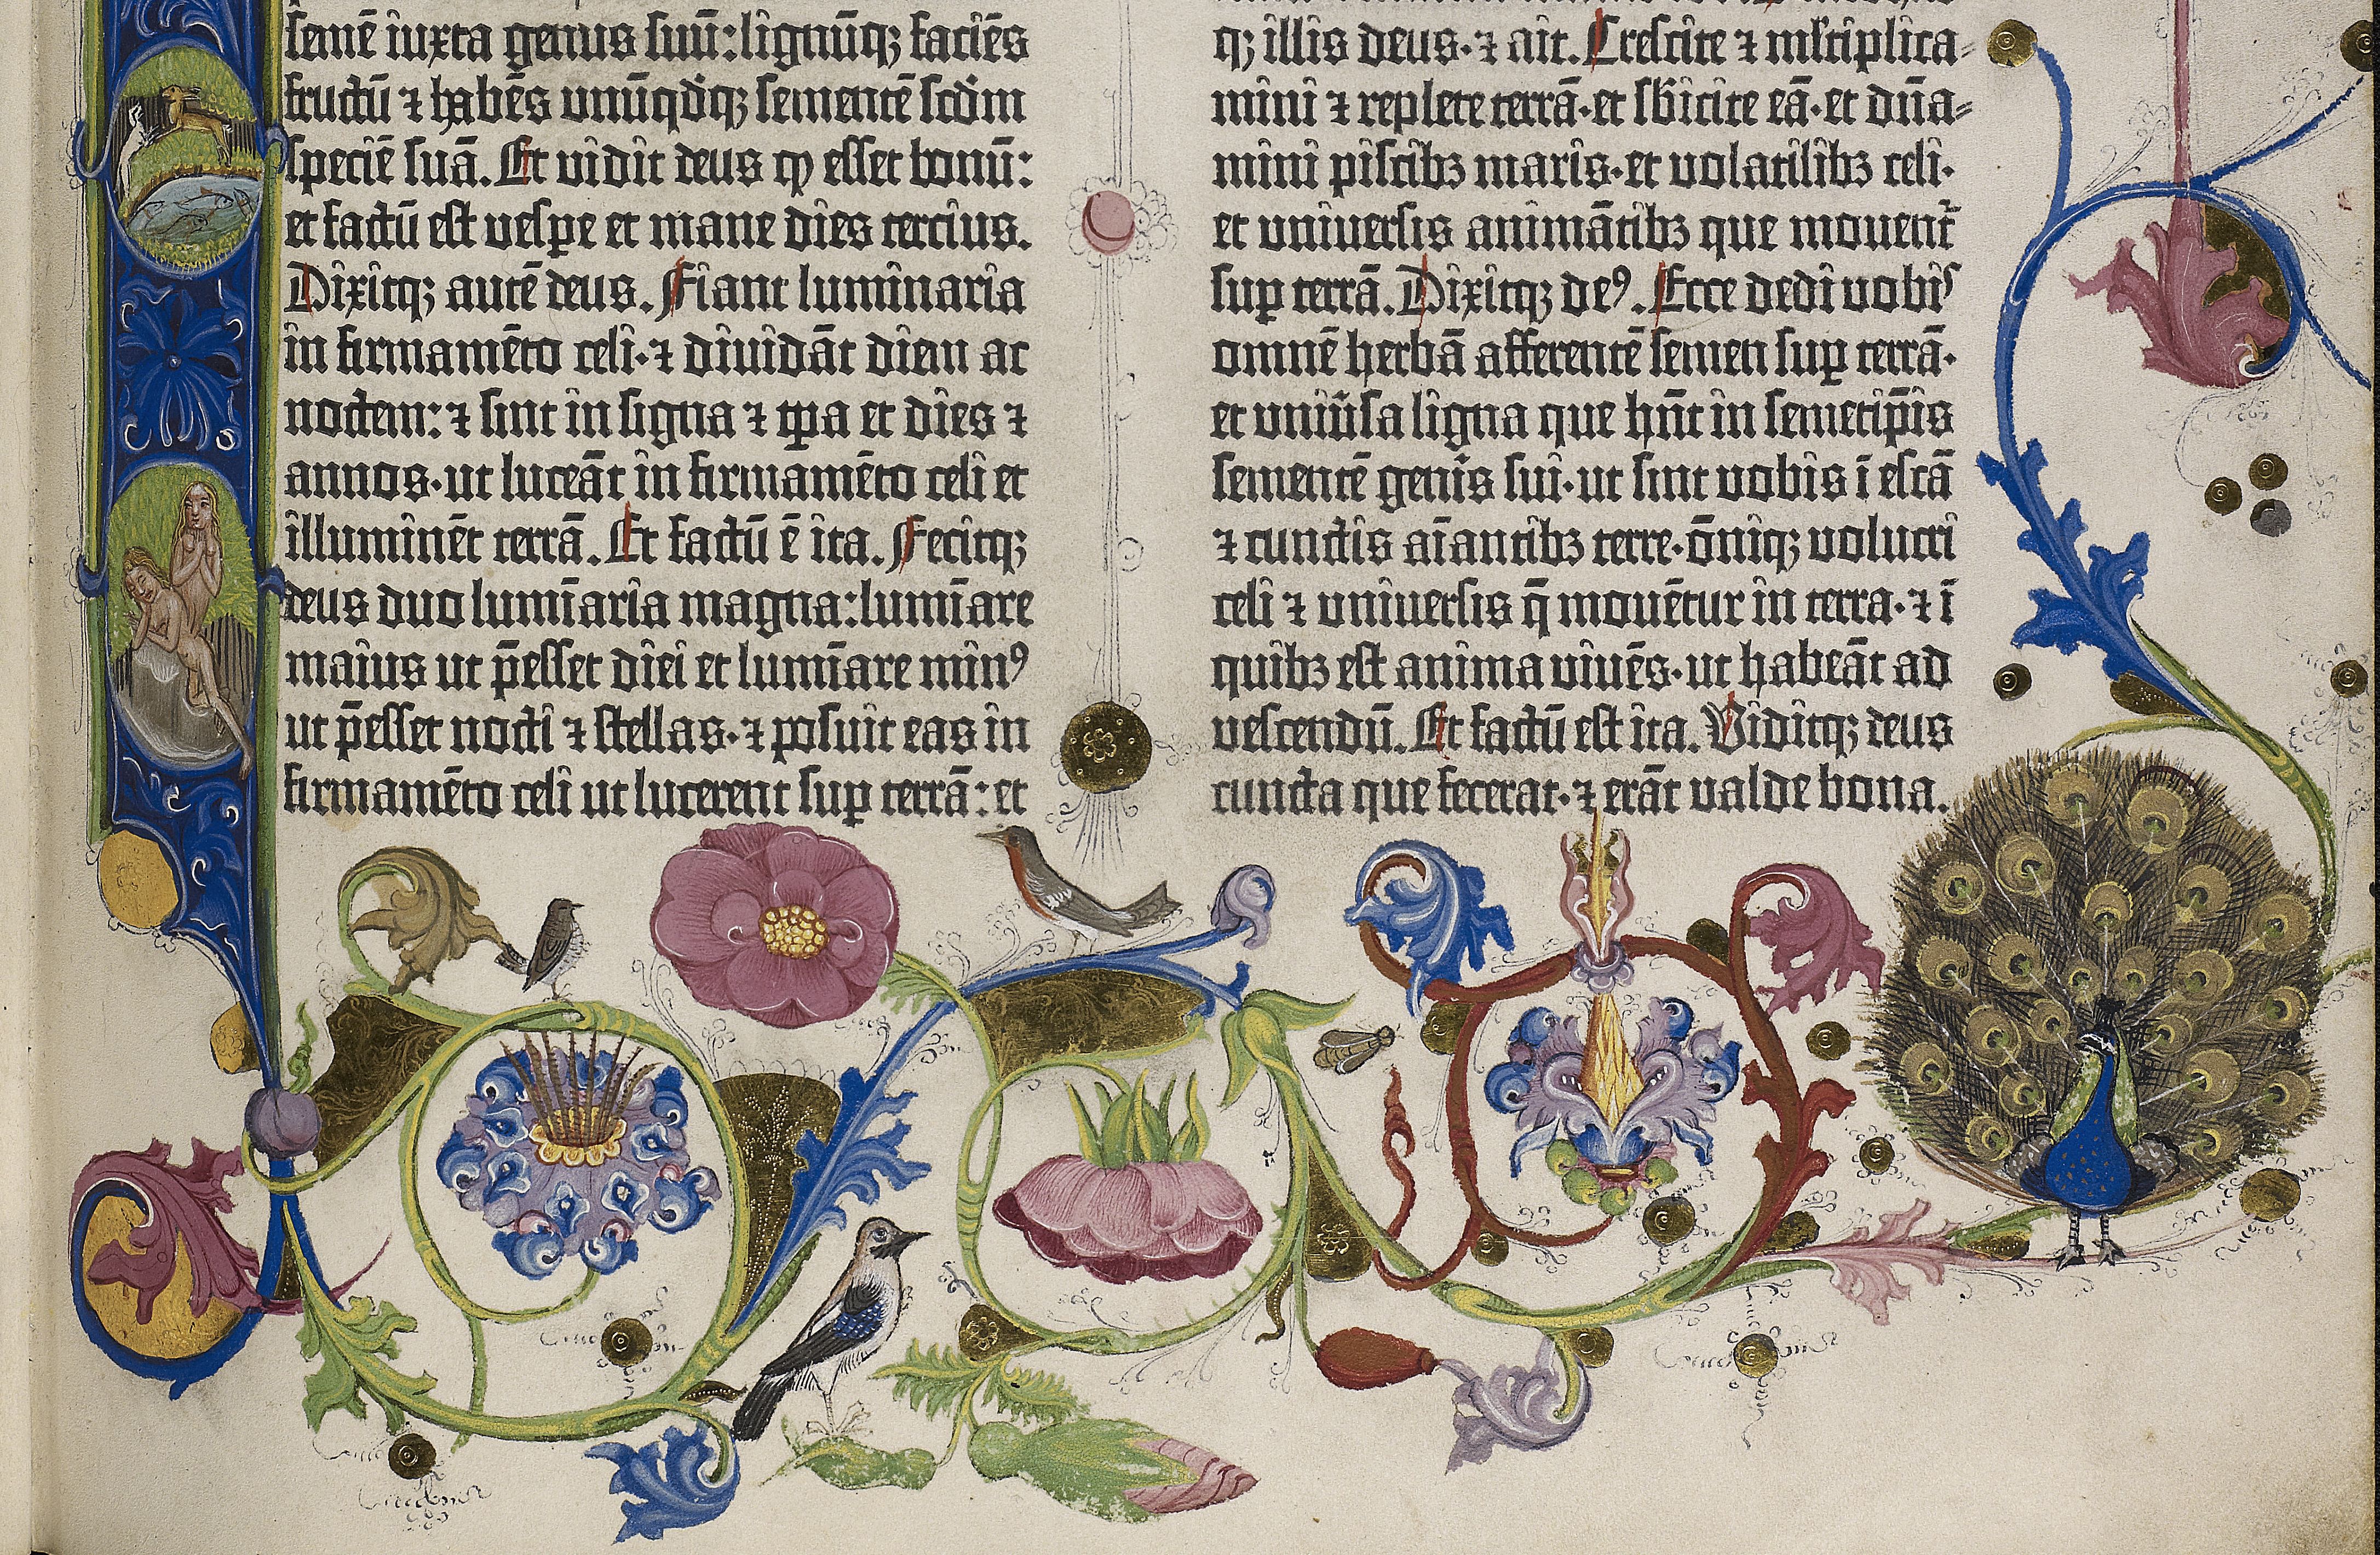 semē iuxta genus suū: lignūq; faciēs
fructū ⁊ habēs unūqdq; sementē scdm
speciē suā. Et vidit deus ꝙ esset bonū:
et factū est vespe et mane dies tercius.
Dixitq; autē deus. Fiant luminaria
in firmamēto celi· ⁊ dividāt diem ac
noctem: ⁊ sint in signa ⁊ tpa et dies ⁊
annos· ut luceāt in firmamēto celi et
illuminēt terrā. Et factū ē ita. Fecitq;
deus duo lumīaria magna: lumīare
maius ut p̄esset diei et lumīare minꝰ
ut p̄esset nocti ⁊ stellas· ⁊ posuit eas in
firmamēto celi ut lucerent sup terrā: et
q; illis deus· ⁊ ait. Crescite ⁊ mltiplica-
mini ⁊ replete terrā· et sbicite eā· et dn̄a-
mini piscibꝫ maris· et volatilibꝫ celi·
et universis animātibꝫ que movent̄
sup terrā. Dixitq; deꝰ. Ecce dedi vobis
omnē herbā afferentē semen sup terrā·
et univ̄sa ligna que hn̄t in semetip̄is
sementē gen̄is sui· ut sint vobis ī escā
⁊ cunctis aīantibꝫ terre· ōniq; volucri
celi ⁊ universis q̄ movētur in terra· ⁊ ī
quibꝫ est anima vivēs· ut habeāt ad
vescendū. Et factū est ita. Viditq; deus
cuncta que fecerat· ⁊ erāt valde bona.